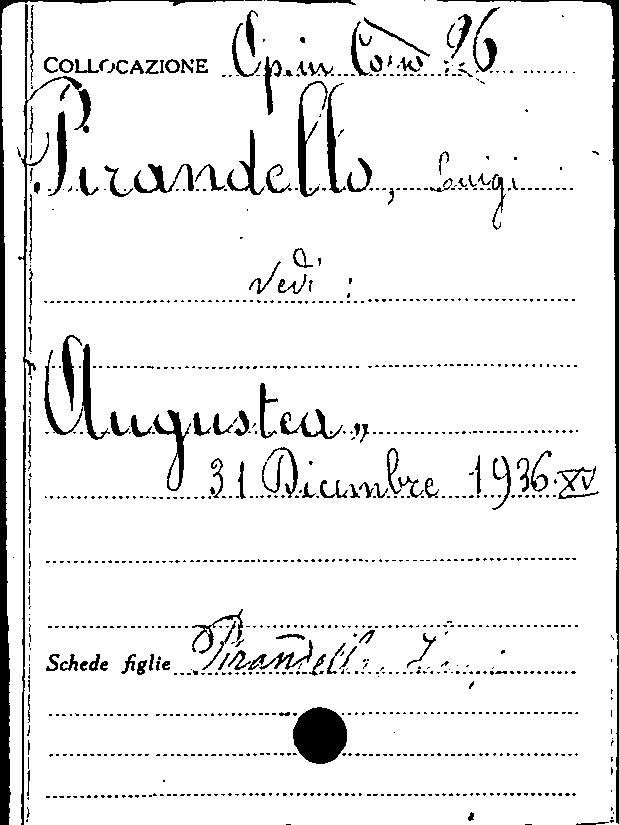 COLLOCAZIONE Op. in Cons 96
Pirandello, Luigi
Vedi :
Augustea„
31 Dicembre 1936 XV
Schede figlie Pirandello, Luigi